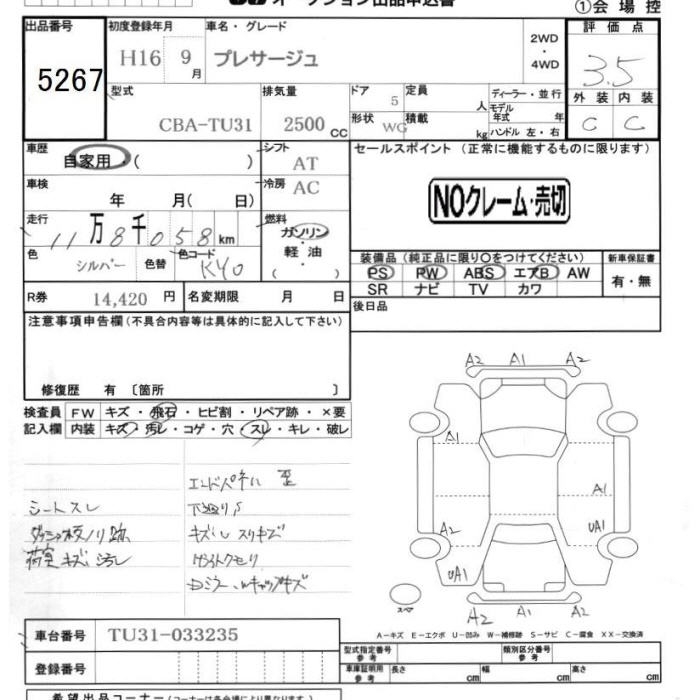 オークション出品申込書
①会場控
出品番号 初度登録年月 車名・グレード 評価点
5267 H16 9月 プレサージュ 2WD・4WD 3.5
型式 排気量 ドア 定員 ディーラー・並行 外装 内装
CBA-TU31 2500cc 5 人 モデル年式 年 C C
形状 WG 積載 kg ハンドル 左・右
車歴 シフト セールスポイント (正常に機能するものに限ります)
自家用・( ) AT
車検 冷房
年 月( 日) AC
NOクレーム・売切
走行 燃料
11万8千058km ガソリン・軽油・( )
色 シルバー 色替 色コード KY0
装備品 (純正品に限り○をつけてください) 新車保証書
PS PW ABS エアB AW 有・無
SR ナビ TV カワ
R券 14,420円 名変期限 月 日 後日品
注意事項申告欄(不具合内容等は具体的に記入して下さい)
修復歴 有 〔箇所 〕
検査員記入欄 FW キズ・飛石・ヒビ割・リペア跡・×要
内装 キズ・汚レ・コゲ・穴・スレ・キレ・破レ
エンドパネル 歪
シートスレ 下廻りS
ダッシュ板ノリ跡 キズU スリキズ
荷室キズ汚レ ライトクモリ
A2 A1 A2
A1
A1
A2 UA1
UA1
スペア
A2 A1 A2
A-キズ E-エクボ U-凹み W-補修跡 S-サビ C-腐食 XX-交換済
車台番号 TU31-033235
型式指定番号 参考 類別区分番号 参考
登録番号
車庫証明用 参考 長さ cm 幅 cm 高さ cm
希望出品コーナー(コーナーは各会場により異なります)